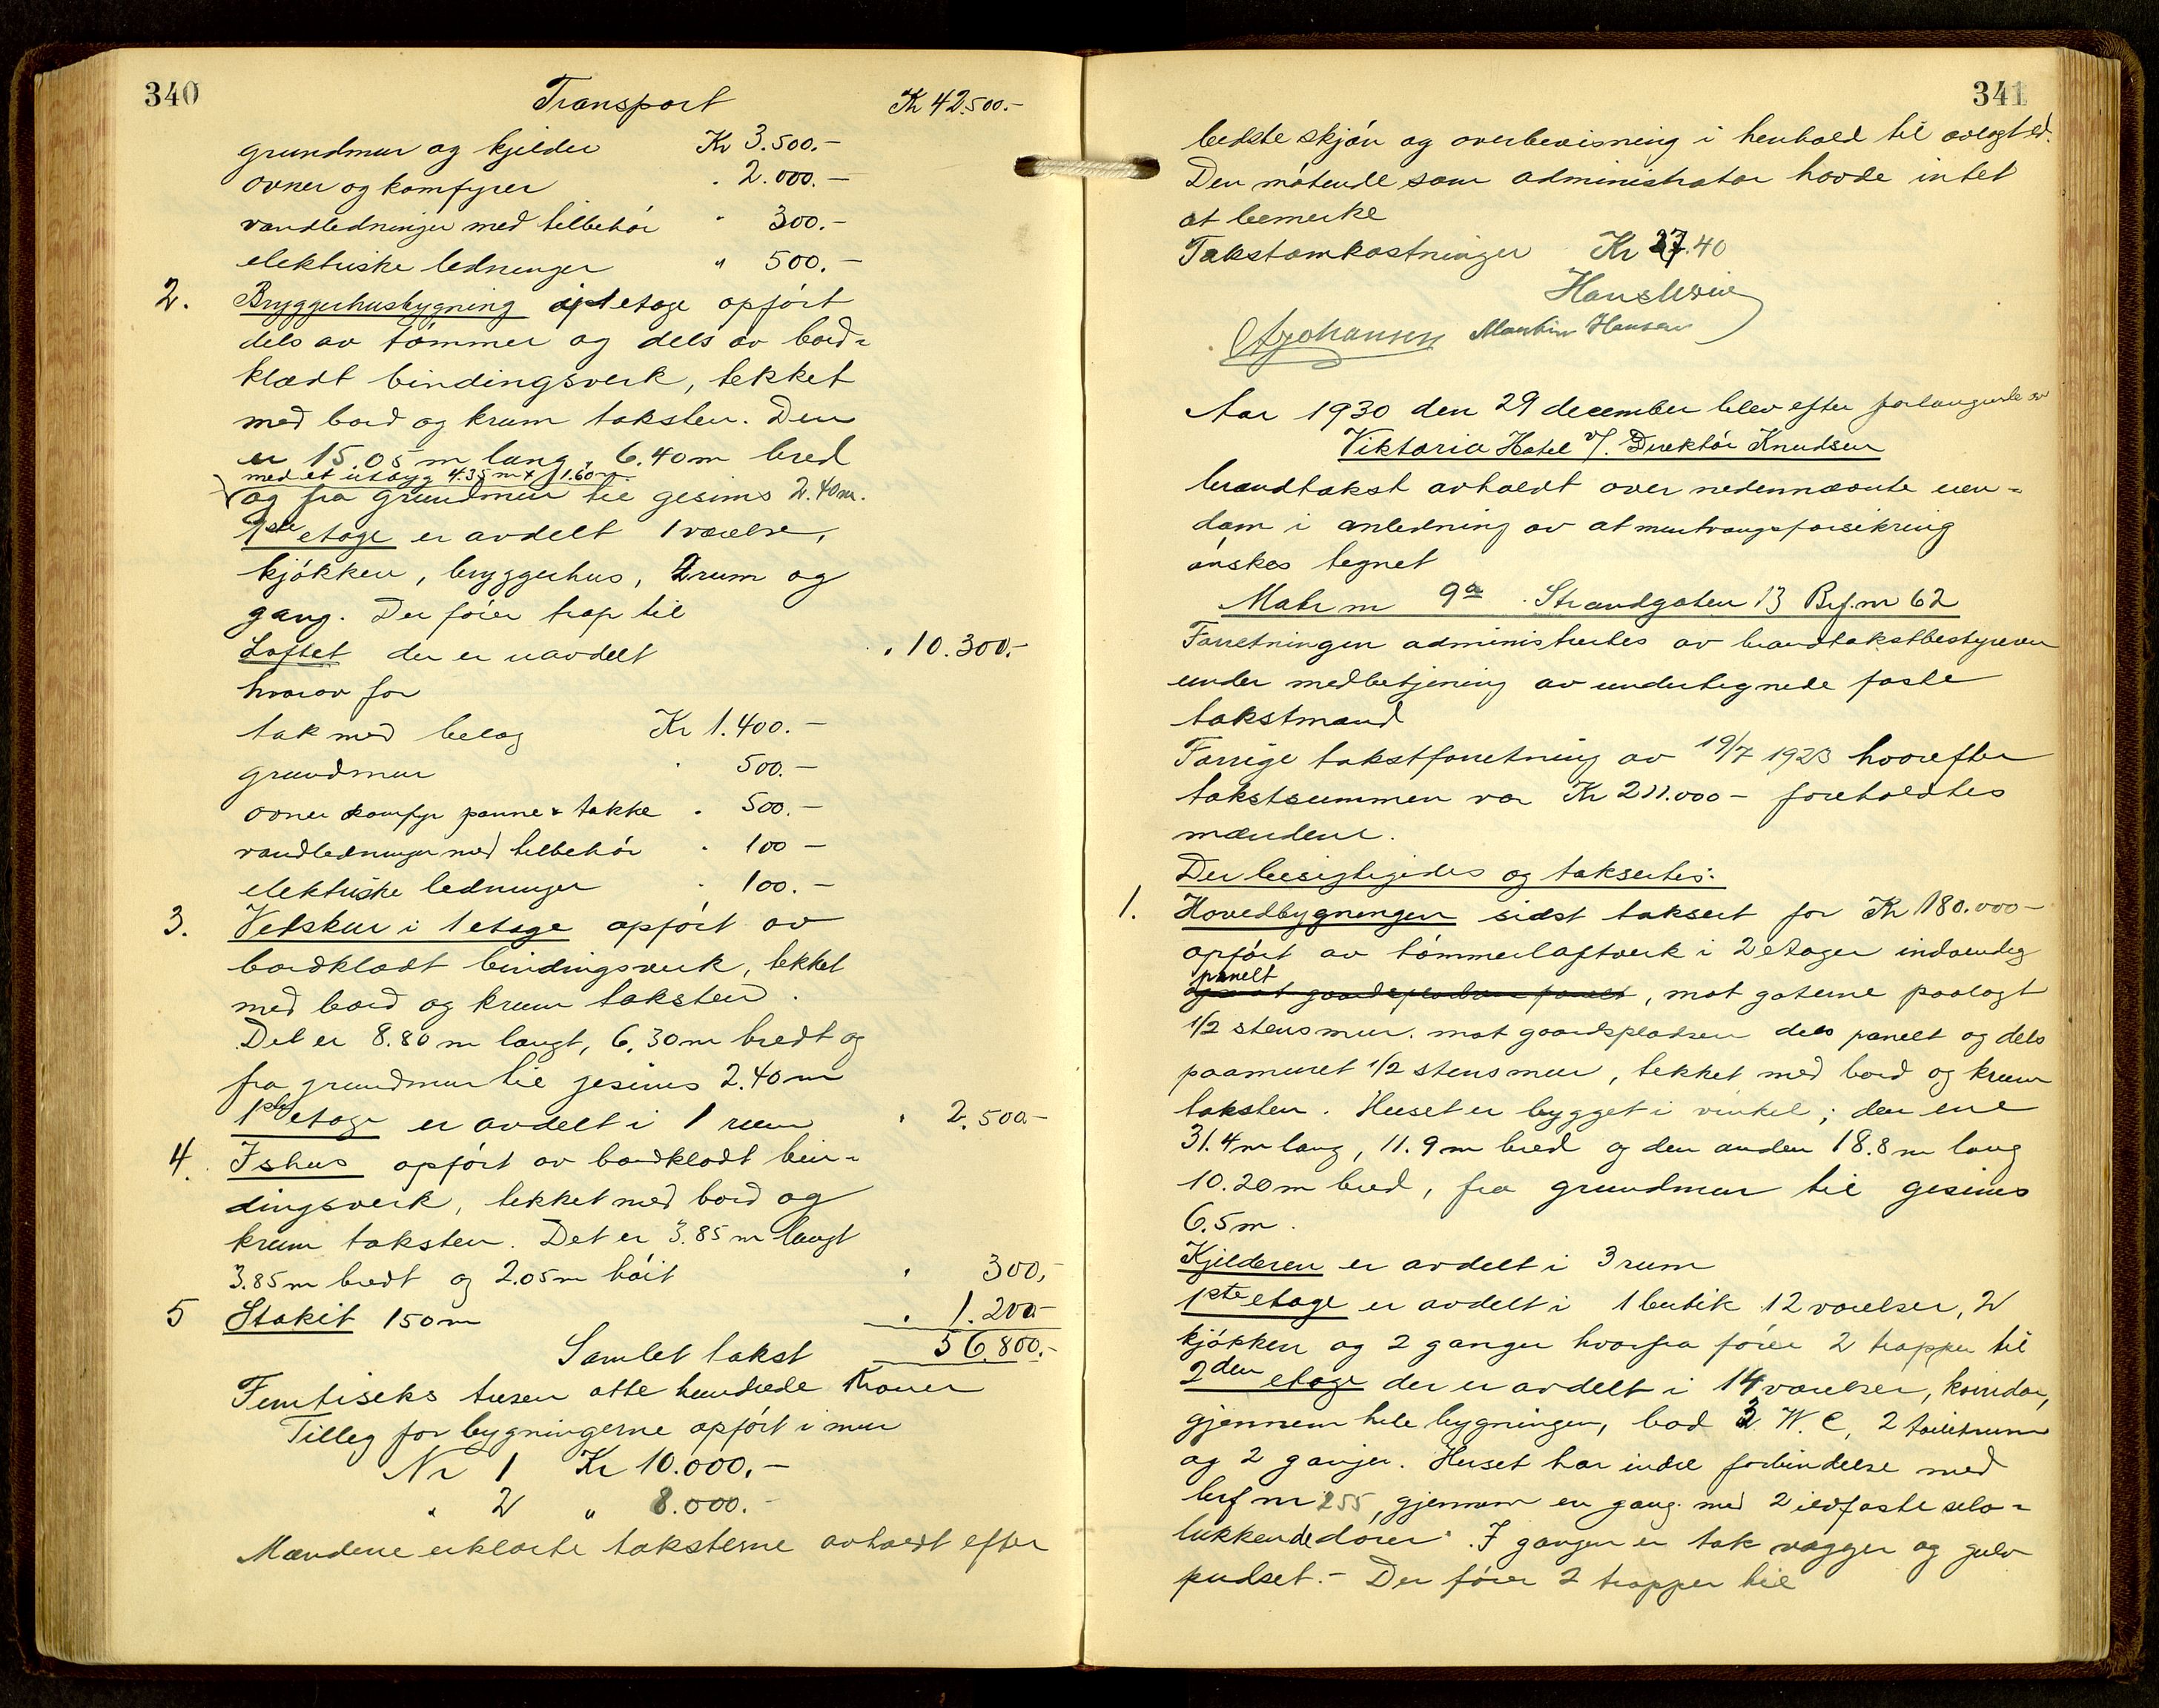 340
Transport Kr 42.500.-
grundmur og kjelder Kr 3.500.-
ovner og komfyrer " 2.000.-
vandledninger med tilbehör " 300.-
elektriske ledninger " 500.-
2. Bryggerhusbygning i 1 etage opfört
dels av tömmer og dels av bord-
klædt bindingsverk, tekket
med bord og krum taksten. Den
er 15.05 m lang, 6.40 m bred
med et utbygg 4.35 m x 1.60 m
og fra grundmur til gesims 2.40 m.
1ste etage er avdelt 1 værelse,
kjökken, bryggerhus, 2 rum og
gang. Der förer trap til
Loftet der er uavdelt " 10.300.-
hvorav for
tak med belæg Kr 1.400.-
grundmur " 500.-
ovner komfyr panne & takke " 500.-
vandledninger med tilbehör " 100 -
elektriske ledninger " 100.-
3. Vedskur i 1 etage opfört av
bordklædt bindingsverk, tekket
med bord og krum taksten.
Det er 8.80 m langt, 6.30 m bredt og
fra grundmur til gesims 2.40 m
1ste etage er avdelt i 1 rum " 2.500-
4. Ishus opfört av bordklædt bin-
dingsverk, tekket med bord og
krum taksten. Det er 3.85 m langt
3.85 m bredt og 2.05 m höit " 300,-
5 Stakit 150 m " 1.200-
Samlet takst 56.800.-
Femtiseks tusen otte hundrede Kroner
Tilleg for bygningerne opfört i mur
Nr 1 Kr 10.000,-
" 2 " 8.000.-
Mændene erklærte taksterne avholdt efter
341
bedste skjön og overbevisning i henhold til avlagt ed.
Den mötende som administrator havde intet
at bemerke
Takstomkostninger Kr 27.40
Martin Hansen
Aar 1930 den 29 december blev efter forlangende av
Viktoria Hotel v/. Direktör Knudsen
brandtakst avholdt over nedennævnte eien-
dom i anledning av at merтvangsforsikring
önskes tegnet
Matr nr 9a Strandgaten 13 Brf. nr 62
Forretningen administrertes av brandtakstbestyreren
under medbetjening av undertegnede faste
takstmænd
Forrige takstforretning av 19/7 1923 hvorefter
takstsummen var Kr 211.000 - foreholdtes
mændene.
Der besigtigedes og taksertes:
1. Hovedbygningen sidst taksert for Kr 180.000-
opfört av tömmerlaftverk i 2 etager indvendig
panelt
, mot gaterne paalagt
1/2 stens mur. mot gaardspladsen dels panelt og dels
paamuret 1/2 stens mur, tekket med bord og krum
taksten. Huset er bygget i vinkel; den ene
31.4 m lang, 11.9 m bred og den anden 18.8 m lang
10.20 m bred, fra grundmur til gesims
6.5 m.
Kjelderen er avdelt i 3 rum
1ste etage er avdelt i 1 butik 12 værelser, 2
kjökken og 2 ganger hvorfra förer 2 trapper til
2den etage der er avdelt i 14 værelser, korridor,
gjennem hele bygningen, bad 3 W.C, 2 toiletrum
og 2 ganger. Huset har indre forbindelse med
brf nr 255, gjennem en gang med 2 ildfaste selv-
lukkende dörer. I gangen er tak vægger og gulv
pudset. - Der förer 2 trapper til